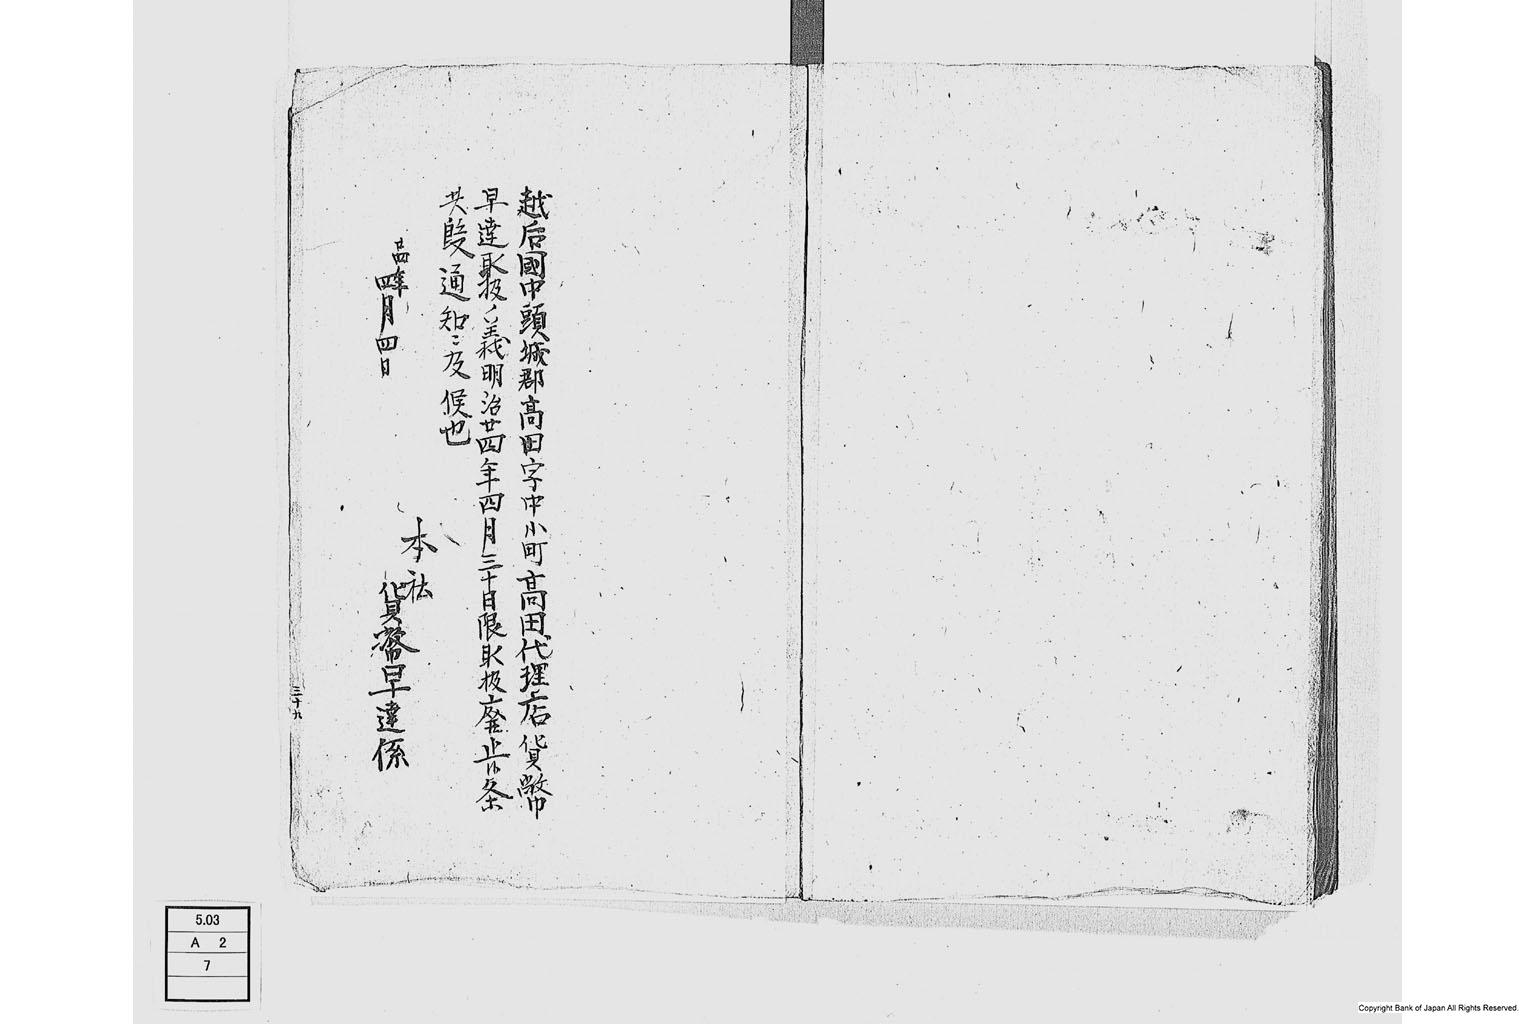 越后國中頭城郡高田字中小町高田代理店貨幣
早達取扱ノ義明治廿四年四月三十日限取扱廃止候条
其段通知ニ及候也
廿四年
四月四日
本社
貨幣早達係
三十九
5.03
A 2
7
Copyright Bank of Japan All Rights Reserved.